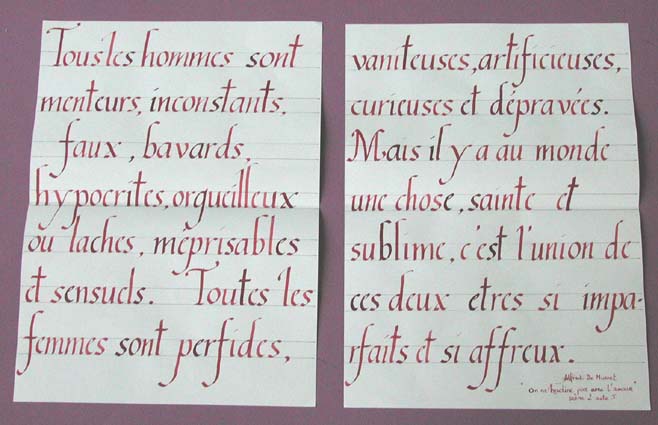 Tous les hommes sont
menteurs, inconstants,
faux, bavards,
hypocrites, orgueilleux
ou laches, méprisables
et sensuels. Toutes les
femmes sont perfides,
vaniteuses, artificieuses,
curieuses et dépravées.
Mais il y a au monde
une chose, sainte et
sublime, c'est l'union de
ces deux etres si impa-
rfaits et si affreux.
Alfred De Musset
"On ne badine pas avec l'amour"
scène 2 acte 5